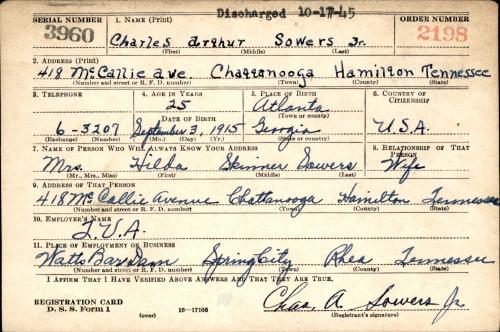 Discharged 10-17-45
SERIAL NUMBER 1. NAME (Print) ORDER NUMBER
3960 Charles Arthur Sowers Jr. 2198
(First) (Middle) (Last)
2. ADDRESS (Print)
418 McCallie Ave. Chattanooga Hamilton Tennessee
(Number and street or R. F. D. number) (Town) (County) (State)
3. TELEPHONE 4. AGE IN YEARS 5. PLACE OF BIRTH 6. COUNTRY OF CITIZENSHIP
25 Atlanta
DATE OF BIRTH (Town or county)
6-3207 September 3, 1915 Georgia U.S.A.
(Exchange) (Number) (Mo.) (Day) (Yr.) (State or country)
7. NAME OF PERSON WHO WILL ALWAYS KNOW YOUR ADDRESS 8. RELATIONSHIP OF THAT PERSON
Mrs. Hilda Skinner Sowers Wife
(Mr., Mrs., Miss) (First) (Middle) (Last)
9. ADDRESS OF THAT PERSON
418 McCallie Avenue Chattanooga Hamilton Tennessee
(Number and street or R. F. D. number) (Town) (County) (State)
10. EMPLOYER'S NAME
T.V.A.
11. PLACE OF EMPLOYMENT OR BUSINESS
Watts Bar Dam Spring City Rhea Tennessee
(Number and street or R. F. D. number) (Town) (County) (State)
I AFFIRM THAT I HAVE VERIFIED ABOVE ANSWERS AND THAT THEY ARE TRUE.
Chas. A. Sowers Jr.
REGISTRATION CARD
D. S. S. Form 1 (over) 16-17105 (Registrant's signature)